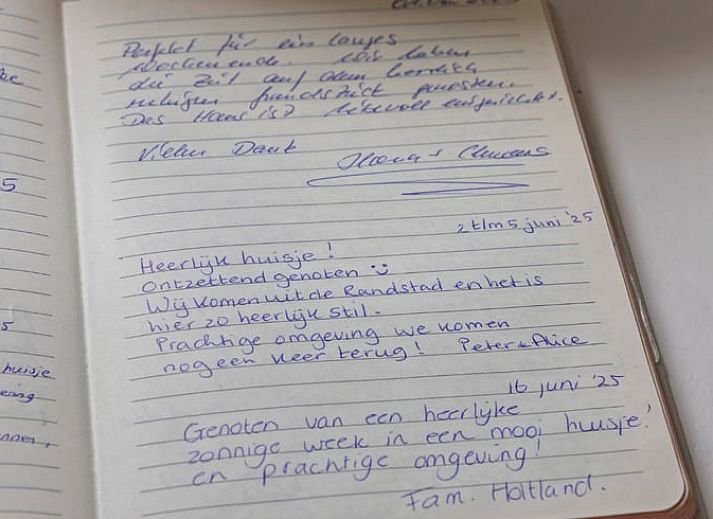 Perfekt für ein langes
Wochenende. Wir haben
die Zeit auf dem herrlich
ruhigen Grundstück genossen.
Das Haus ist liebevoll eingerichtet.
Vielen Dank
2 t/m 5 juni '25
Heerlijk huisje !
Ontzettend genoten
Wij komen uit de Randstad en het is
hier zo heerlijk stil.
Prachtige omgeving we komen
nog een keer terug ! Peter & Alice
16 juni '25
Genoten van een heerlijke
zonnige week in een mooi huisje!
en prachtige omgeving!
Fam. Holtland.
5
5
huisje